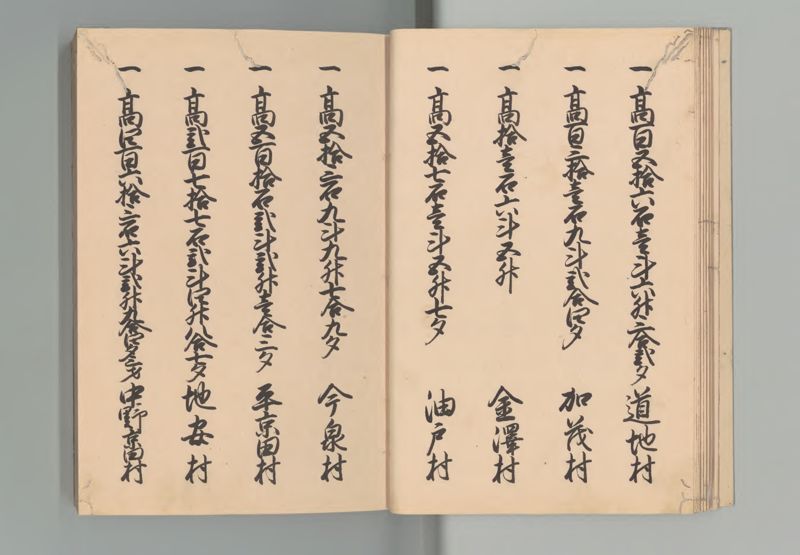 一高百五拾六石壱斗六升六合弐夕 道地村
一高百三拾壱石九斗弐合四夕 加茂村
一高拾壱石六斗五升 金澤村
一高五拾七石壱斗五升七夕 油戸村
一高五拾三石九斗九升七合九夕 今泉村
一高五百拾石弐斗弐升壱合三夕 平京田村
一高弐百七拾七石弐斗四升八合七夕 地安村
一高四百六拾三石六斗弐升九合四夕 中野京田村